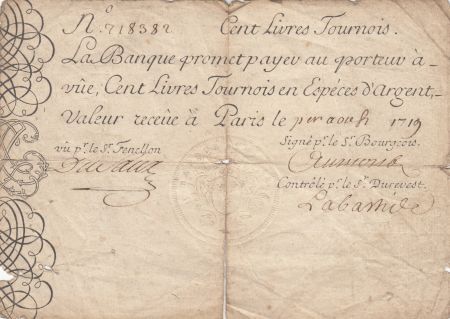 N.o 718382 Cent Livres Tournois.
La Banque promet payer au porteur à
vüe, Cent Livres Tournois en Espéces d'Argent,
Valeur receüe à Paris le p.er aoust 1719
vû p.r le S.r Fenellon
Signé p.r le S.r Bourgeois.
Contrôlé p.r le S.r Durevest.